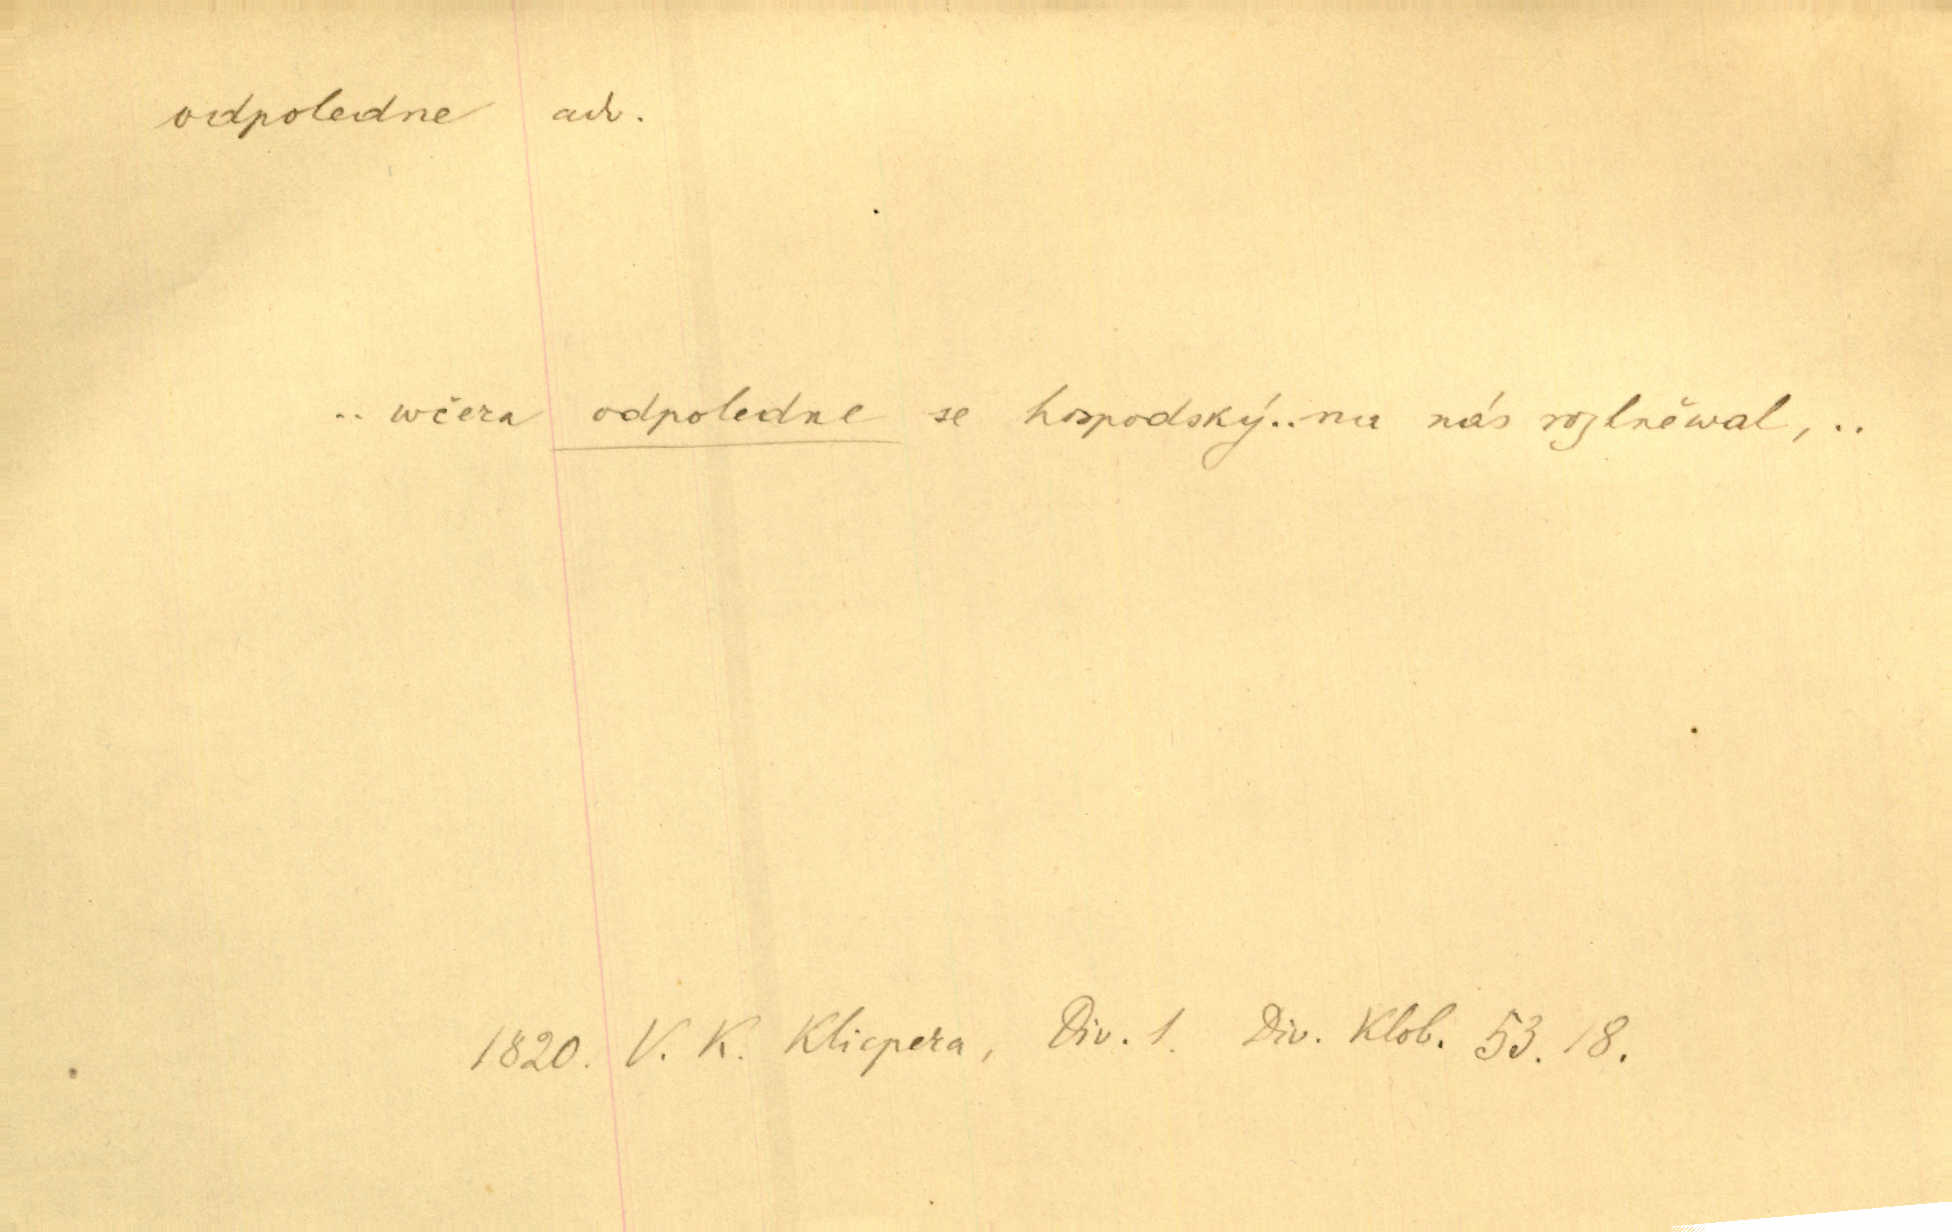 odpoledne adv.
.. wčera odpoledne se hospodský .. na nás rozhněwal, ..
1820. V. K. Klicpera, Div. 1. Div. Klob. 53. 18.